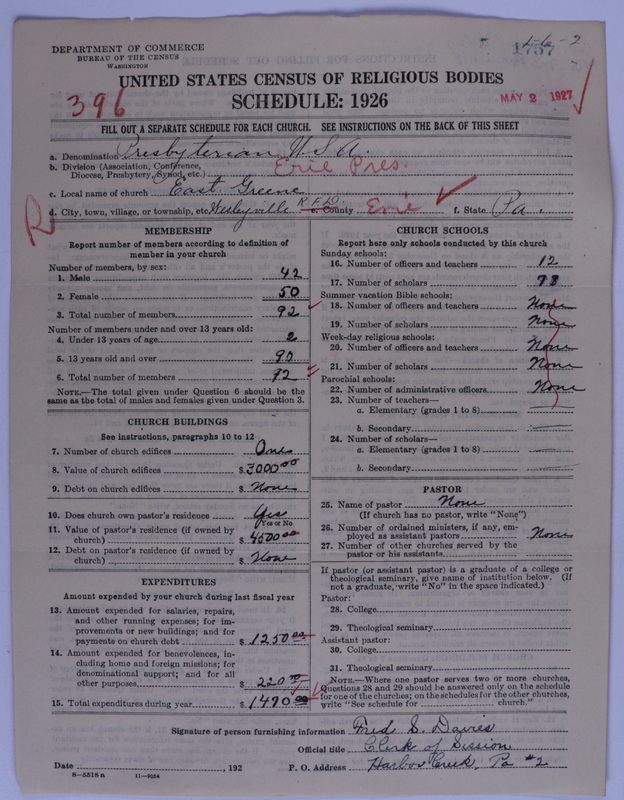 DEPARTMENT OF COMMERCE
BUREAU OF THE CENSUS
WASHINGTON
4-6-2
1757
UNITED STATES CENSUS OF RELIGIOUS BODIES
SCHEDULE: 1926
396
MAY 2 1927
FILL OUT A SEPARATE SCHEDULE FOR EACH CHURCH. SEE INSTRUCTIONS ON THE BACK OF THIS SHEET
a. Denomination Presbyterian U.S.A.
b. Division (Association, Conference, Diocese, Presbytery, Synod, etc.) Erie Pres.
c. Local name of church East Greene
d. City, town, village, or township, etc. Wesleyville R.F.D. e. County Erie f. State Pa.
R
MEMBERSHIP
Report number of members according to definition of
member in your church
Number of members, by sex:
1. Male 42
2. Female 50
3. Total number of members 92
Number of members under and over 13 years old:
4. Under 13 years of age 2
5. 13 years old and over 90
6. Total number of members 92
NOTE.—The total given under Question 6 should be the
same as the total of males and females given under Question 3.
CHURCH BUILDINGS
See instructions, paragraphs 10 to 12
7. Number of church edifices One
8. Value of church edifices $ 3000 00
9. Debt on church edifices $ None
10. Does church own pastor's residence Yes
(Yes or No)
11. Value of pastor's residence (if owned by
church) $ 4500 00
12. Debt on pastor's residence (if owned by
church) $ None
EXPENDITURES
Amount expended by your church during last fiscal year
13. Amount expended for salaries, repairs,
and other running expenses; for im-
provements or new buildings; and for
payments on church debt $ 1250 00
14. Amount expended for benevolences, in-
cluding home and foreign missions; for
denominational support; and for all
other purposes $ 220
15. Total expenditures during year $ 1470 00
CHURCH SCHOOLS
Report here only schools conducted by this church
Sunday schools:
16. Number of officers and teachers 12
17. Number of scholars 78
Summer vacation Bible schools:
18. Number of officers and teachers None
19. Number of scholars None
Week-day religious schools:
20. Number of officers and teachers None
21. Number of scholars None
Parochial schools:
22. Number of administrative officers None
23. Number of teachers—
a. Elementary (grades 1 to 8)
b. Secondary
24. Number of scholars—
a. Elementary (grades 1 to 8)
b. Secondary
PASTOR
25. Name of pastor None
(If church has no pastor, write "None")
26. Number of ordained ministers, if any, em-
ployed as assistant pastors None
27. Number of other churches served by the
pastor or his assistants
If pastor (or assistant pastor) is a graduate of a college or
theological seminary, give name of institution below. (If
not a graduate, write "No" in the space indicated.)
Pastor:
28. College
29. Theological seminary
Assistant pastor:
30. College
31. Theological seminary
NOTE.—Where one pastor serves two or more churches,
Questions 28 and 29 should be answered only on the schedule
for one of the churches; on the schedules for the other churches,
write "See schedule for church."
Signature of person furnishing information Fred S. Davies
Official title Clerk of Session
Date , 192 P. O. Address Harbor Creek, Pa #2
8—5518 a 11—9024